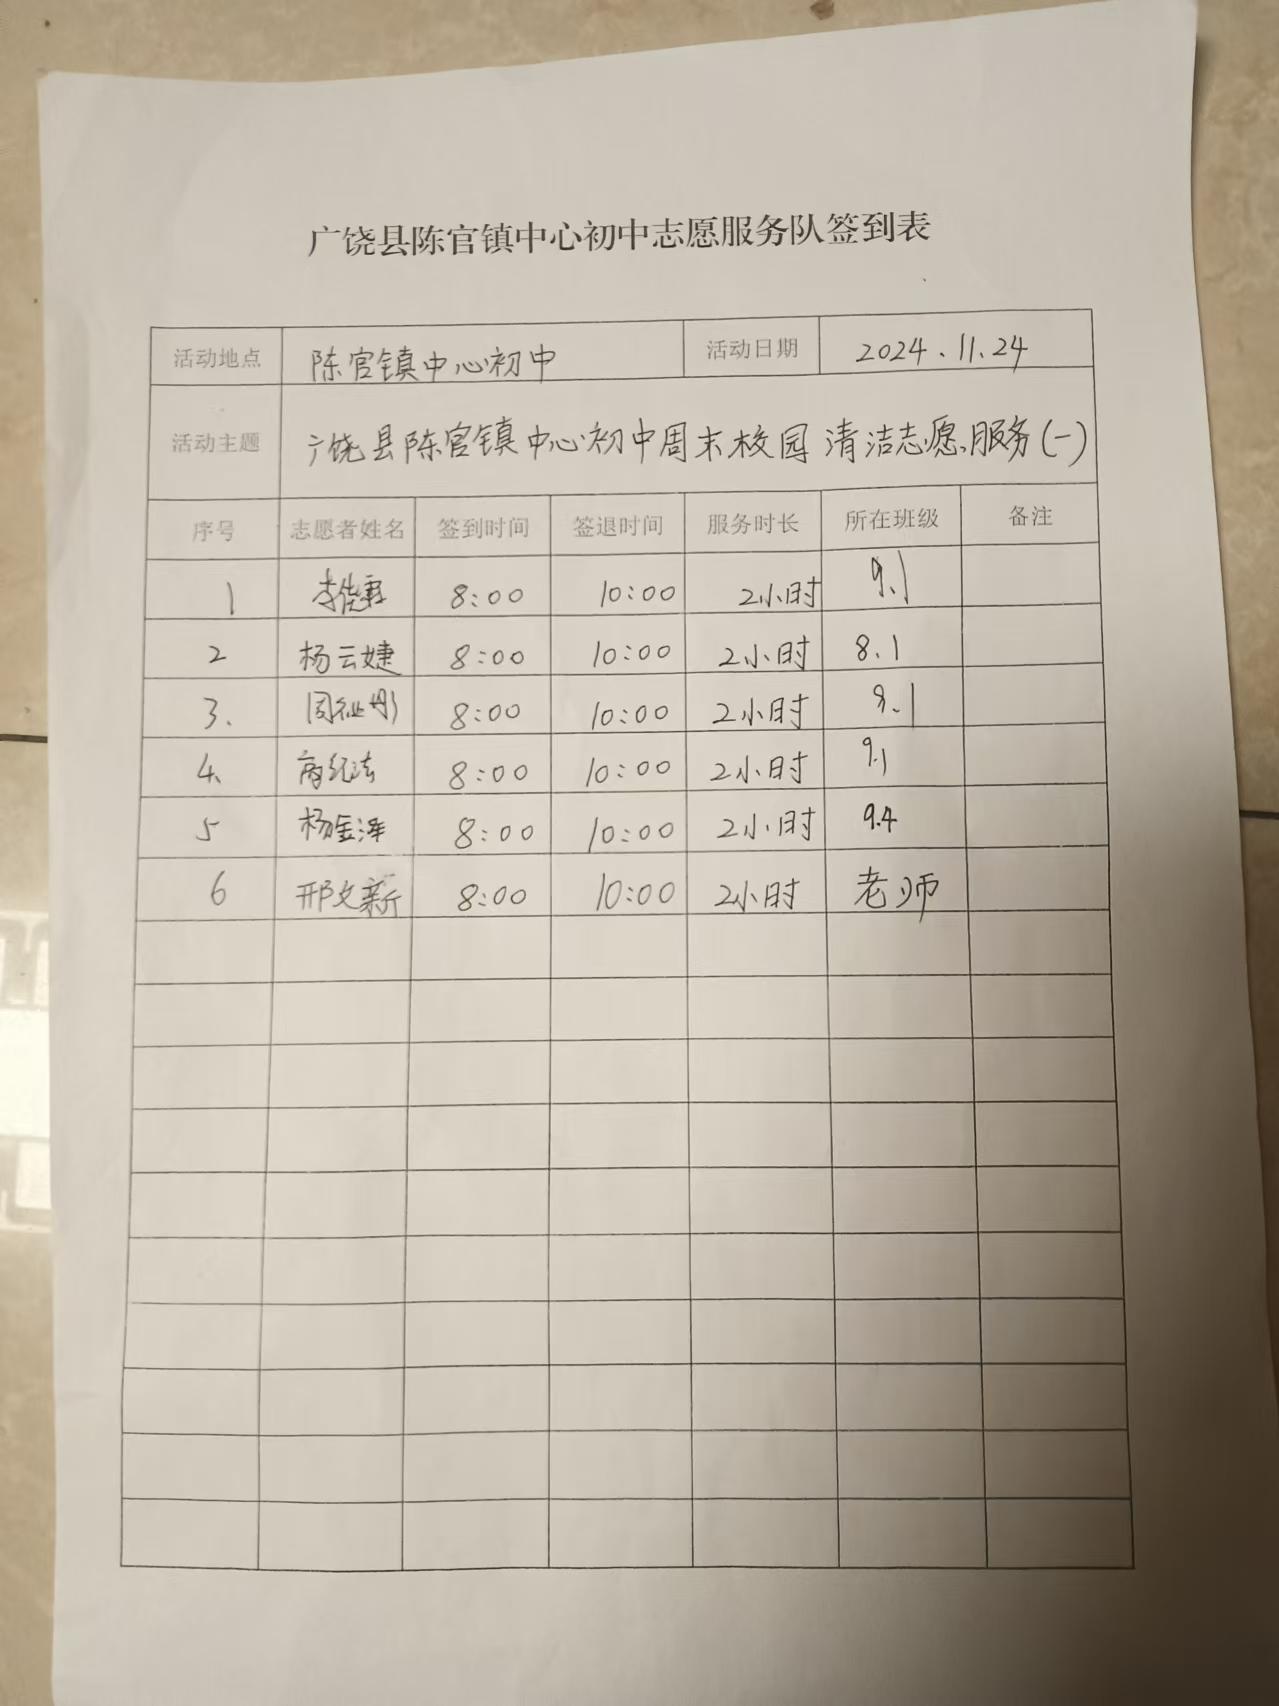 广饶县陈官镇中心初中志愿服务队签到表
活动地点 陈官镇中心初中 活动日期 2024.11.24
活动主题 广饶县陈官镇中心初中周末校园清洁志愿服务(一)
序号 志愿者姓名 签到时间 签退时间 服务时长 所在班级 备注
1 8:00 10:00 2小时 9.1
2 杨云婕 8:00 10:00 2小时 8.1
3. 8:00 10:00 2小时
4. 8:00 10:00 2小时 9.1
5 杨金泽 8:00 10:00 2小时 9.4
6 邢文新 8:00 10:00 2小时 老师